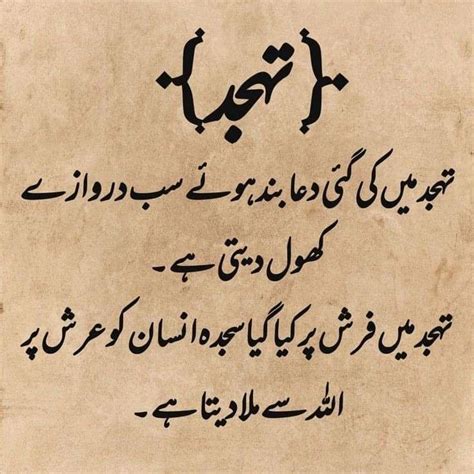 {تہجد}
تہجد میں کی گئی دعا بند ہوئے سب دروازے
کھول دیتی ہے۔
تہجد میں فرش پر کیا گیا سجدہ انسان کو عرش پر
اللہ سے ملا دیتا ہے۔